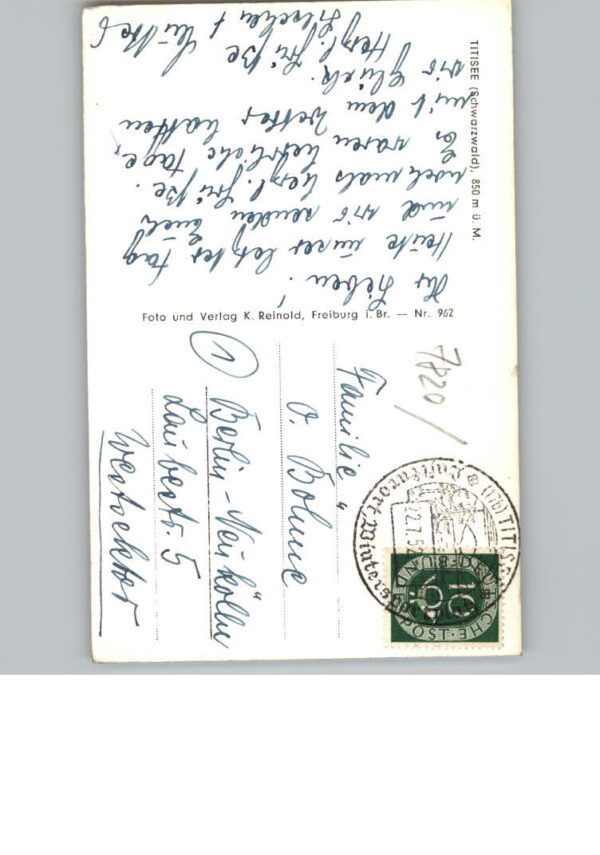 TITISEE (Schwarzwald), 850 m ü. M.
Ihr Lieben!
Heute unser letzter Tag
und wir senden Euch
nochmals herzl. Grüße.
Es waren herrliche Tage,
mit dem Wetter hatten
wir Glück.
Herzl. Grüße
Foto und Verlag K. Reinold, Freiburg i. Br. — Nr. 962
7820/
Familie
O. Böhme
① Berlin-Neukölln
Laubestr. 5
Westsektor
(17b) TITISEE
Luftkurort
Wintersportplatz
22.7.52
DEUTSCHE BUNDESPOST
10